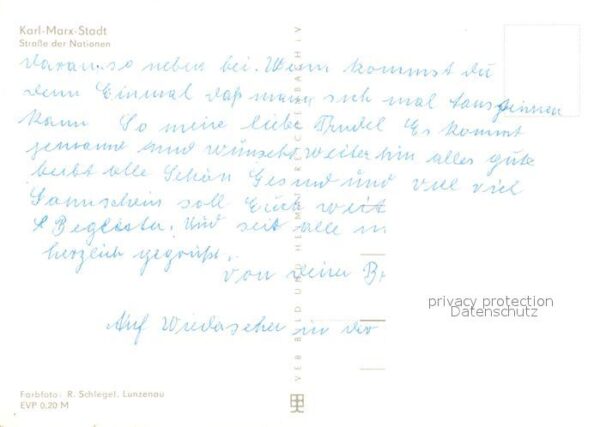 Karl-Marx-Stadt
Straße der Nationen
daran so neben bei. Wenn kommst du
denn Einmal daß mann sich mal
kann So meine liebe Trudel Es kommt
jemand und wünscht weiter hin alles gute
beibt alle Schön Gesund und viel viel
Sonnschein soll Euch weit
Und seit alle
herzlich gegrüßt.
von deiner B
Auf Wiedasehen in der
privacy protection
Datenschutz
VEB BILD UND HEIMAT REICHENBACH I V
Farbfoto: R. Schlegel, Lunzenau
EVP 0,20 M